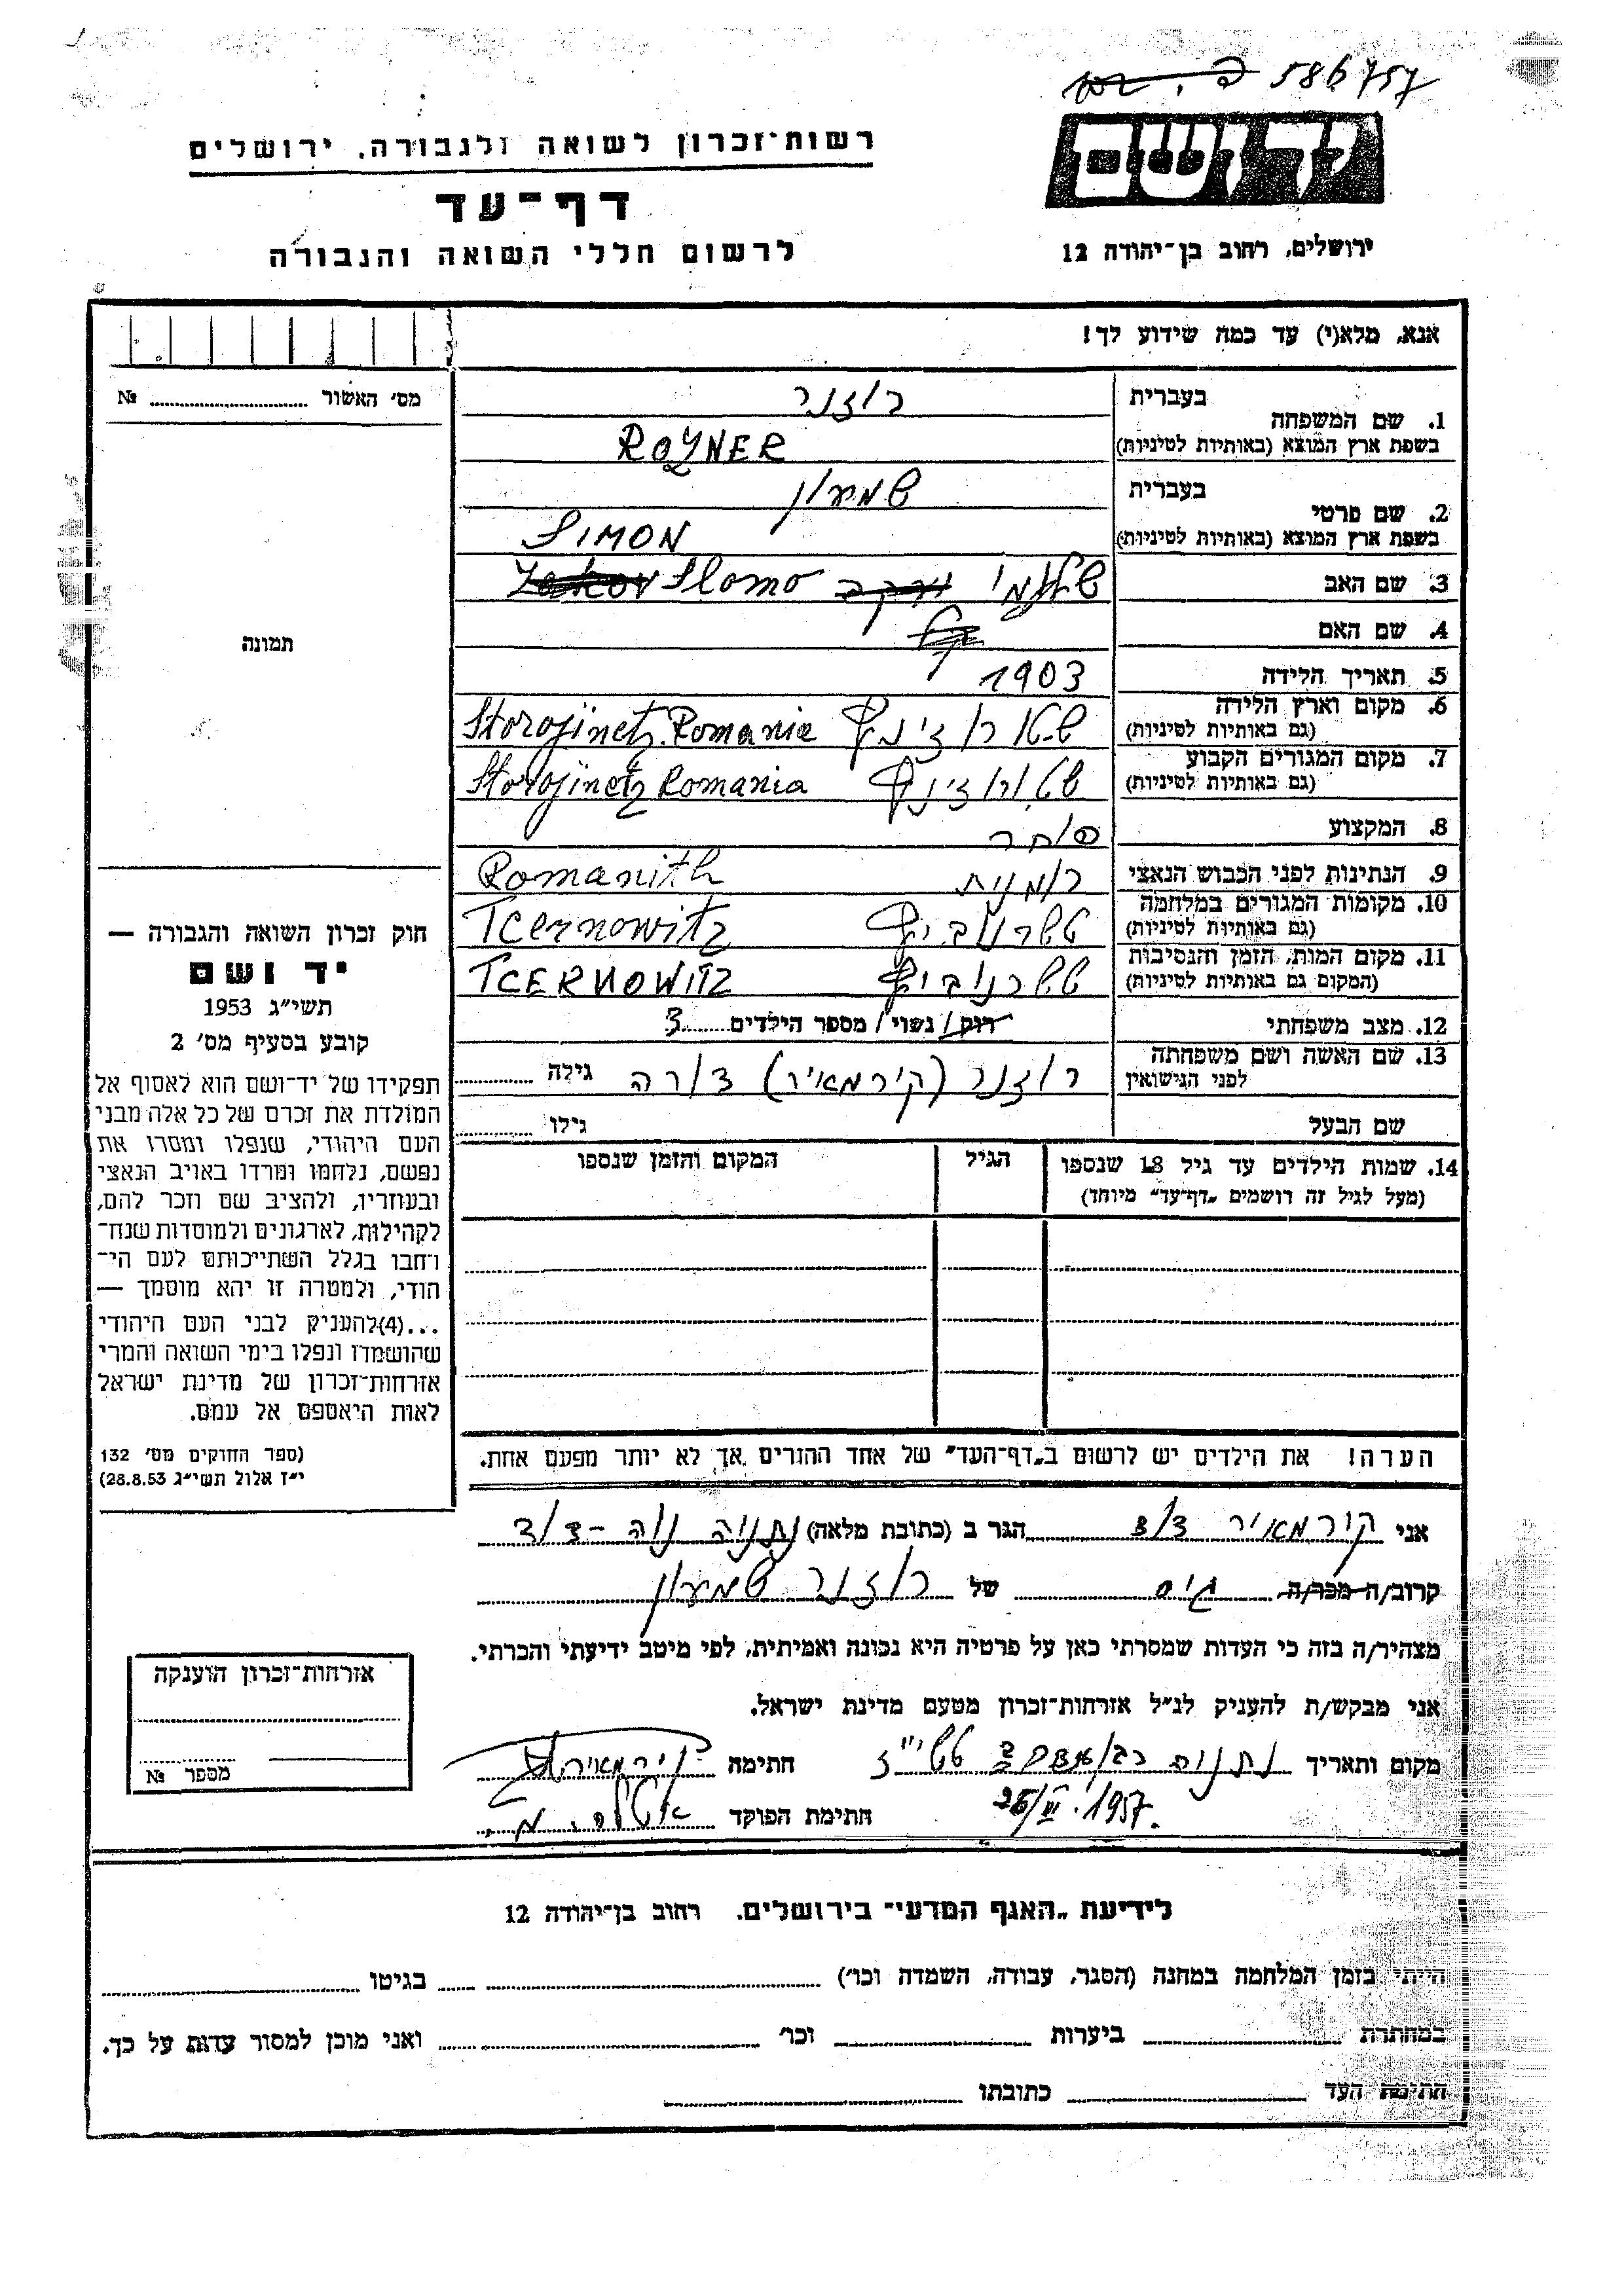 586757
רשות־זכרון לשואה ולגבורה, ירושלים
דף־עד
לרשום חללי השואה והגבורה
יד ושם
ירושלים, רחוב בן־יהודה 12
אנא, מלא(י) עד כמה שידוע לך!
מס׳ האשור № 
תמונה
חוק זכרון השואה והגבורה —
יד ושם
תשי״ג 1953
קובע בסעיף מס׳ 2
תפקידו של יד־ושם הוא לאסוף אל
המולדת את זכרם של כל אלה מבני
העם היהודי, שנפלו ומסרו את
נפשם, נלחמו ומרדו באויב הנאצי
ובעוזריו, ולהציב שם וזכר להם,
לקהילות, לארגונים ולמוסדות שנח־
רחבו בגלל השתייכותם לעם הי־
הודי, ולמטרה זו יהא מוסמך —
...(4)להעניק לבני העם היהודי
שהושמדו ונפלו בימי השואה והמרי
אזרחות־זכרון של מדינת ישראל
לאות היאספם אל עמם.
(ספר החוקים מס׳ 132
י״ז אלול תשי״ג 28.8.53)
1. שם המשפחה בעברית רוזנר
בשפת ארץ המוצא (באותיות לטיניות) ROZNER
2. שם פרטי בעברית שמעון
בשפת ארץ המוצא (באותיות לטיניות) SIMON
3. שם האב שלומו יעקב Jakov Slomo
4. שם האם
5. תאריך הלידה 1903
6. מקום וארץ הלידה (גם באותיות לטיניות) Storojinetz Romania
7. מקום המגורים הקבוע (גם באותיות לטיניות) Storojinetz Romania
8. המקצוע סוחר
9. הנתינות לפני הכבוש הנאצי רומנית Romanith
10. מקומות המגורים במלחמה (גם באותיות לטיניות) טשרנוביץ Tcernowitz
11. מקום המות, הזמן והנסיבות (המקום גם באותיות לטיניות) טשרנוביץ TCERNOWITZ
12. מצב משפחתי רוק/נשוי/ מספר הילדים 3
13. שם האשה ושם משפחתה לפני הנישואין רוזנר (קירמאיר) דורה גילה
שם הבעל גילו
14. שמות הילדים עד גיל 18 שנספו הגיל המקום והזמן שנספו
(מעל לגיל זה רושמים „דף־עד״ מיוחד)
הערה! את הילדים יש לרשום ב„דף־העד״ של אחד ההורים אך לא יותר מפעם אחת.
אני קירמאיר הגר ב (כתובת מלאה) נתניה
קרוב/ה מכר/ה גיס של רוזנר שמעון
מצהיר/ה בזה כי העדות שמסרתי כאן על פרטיה היא נכונה ואמיתית, לפי מיטב ידיעתי והכרתי.
אני מבקש/ת להעניק לנ״ל אזרחות־זכרון מטעם מדינת ישראל.
מקום ותאריך נתניה חתימה קירמאיר
1957
חתימת הפוקד
אזרחות־זכרון הוענקה
מספר №
לידיעת „האגף המדעי״ בירושלים, רחוב בן־יהודה 12
הייתי בזמן המלחמה במחנה (הסגר, עבודה, השמדה וכו׳) בגיטו
במחתרת ביערות וכו׳ ואני מוכן למסור עדות על כך.
חתימת העד כתובתו